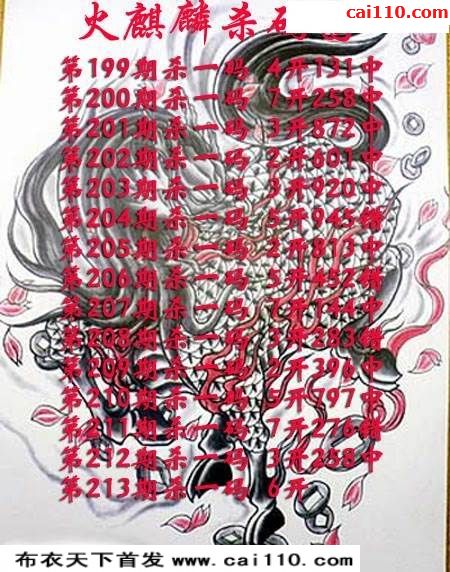 cai110.com
火麒麟杀码
第199期杀一码 4开131中
第200期杀一码 7开258中
第201期杀一码 3开872中
第202期杀一码 2开601中
第203期杀一码 3开920中
第204期杀一码 5开945错
第205期杀一码 2开813中
第206期杀一码 5开452错
第207期杀一码 7开144中
第208期杀一码 3开283错
第209期杀一码 2开396中
第210期杀一码 5开797中
第211期杀一码 7开276错
第212期杀一码 3开258中
第213期杀一码 6开
布衣天下首发 www.cai110.com